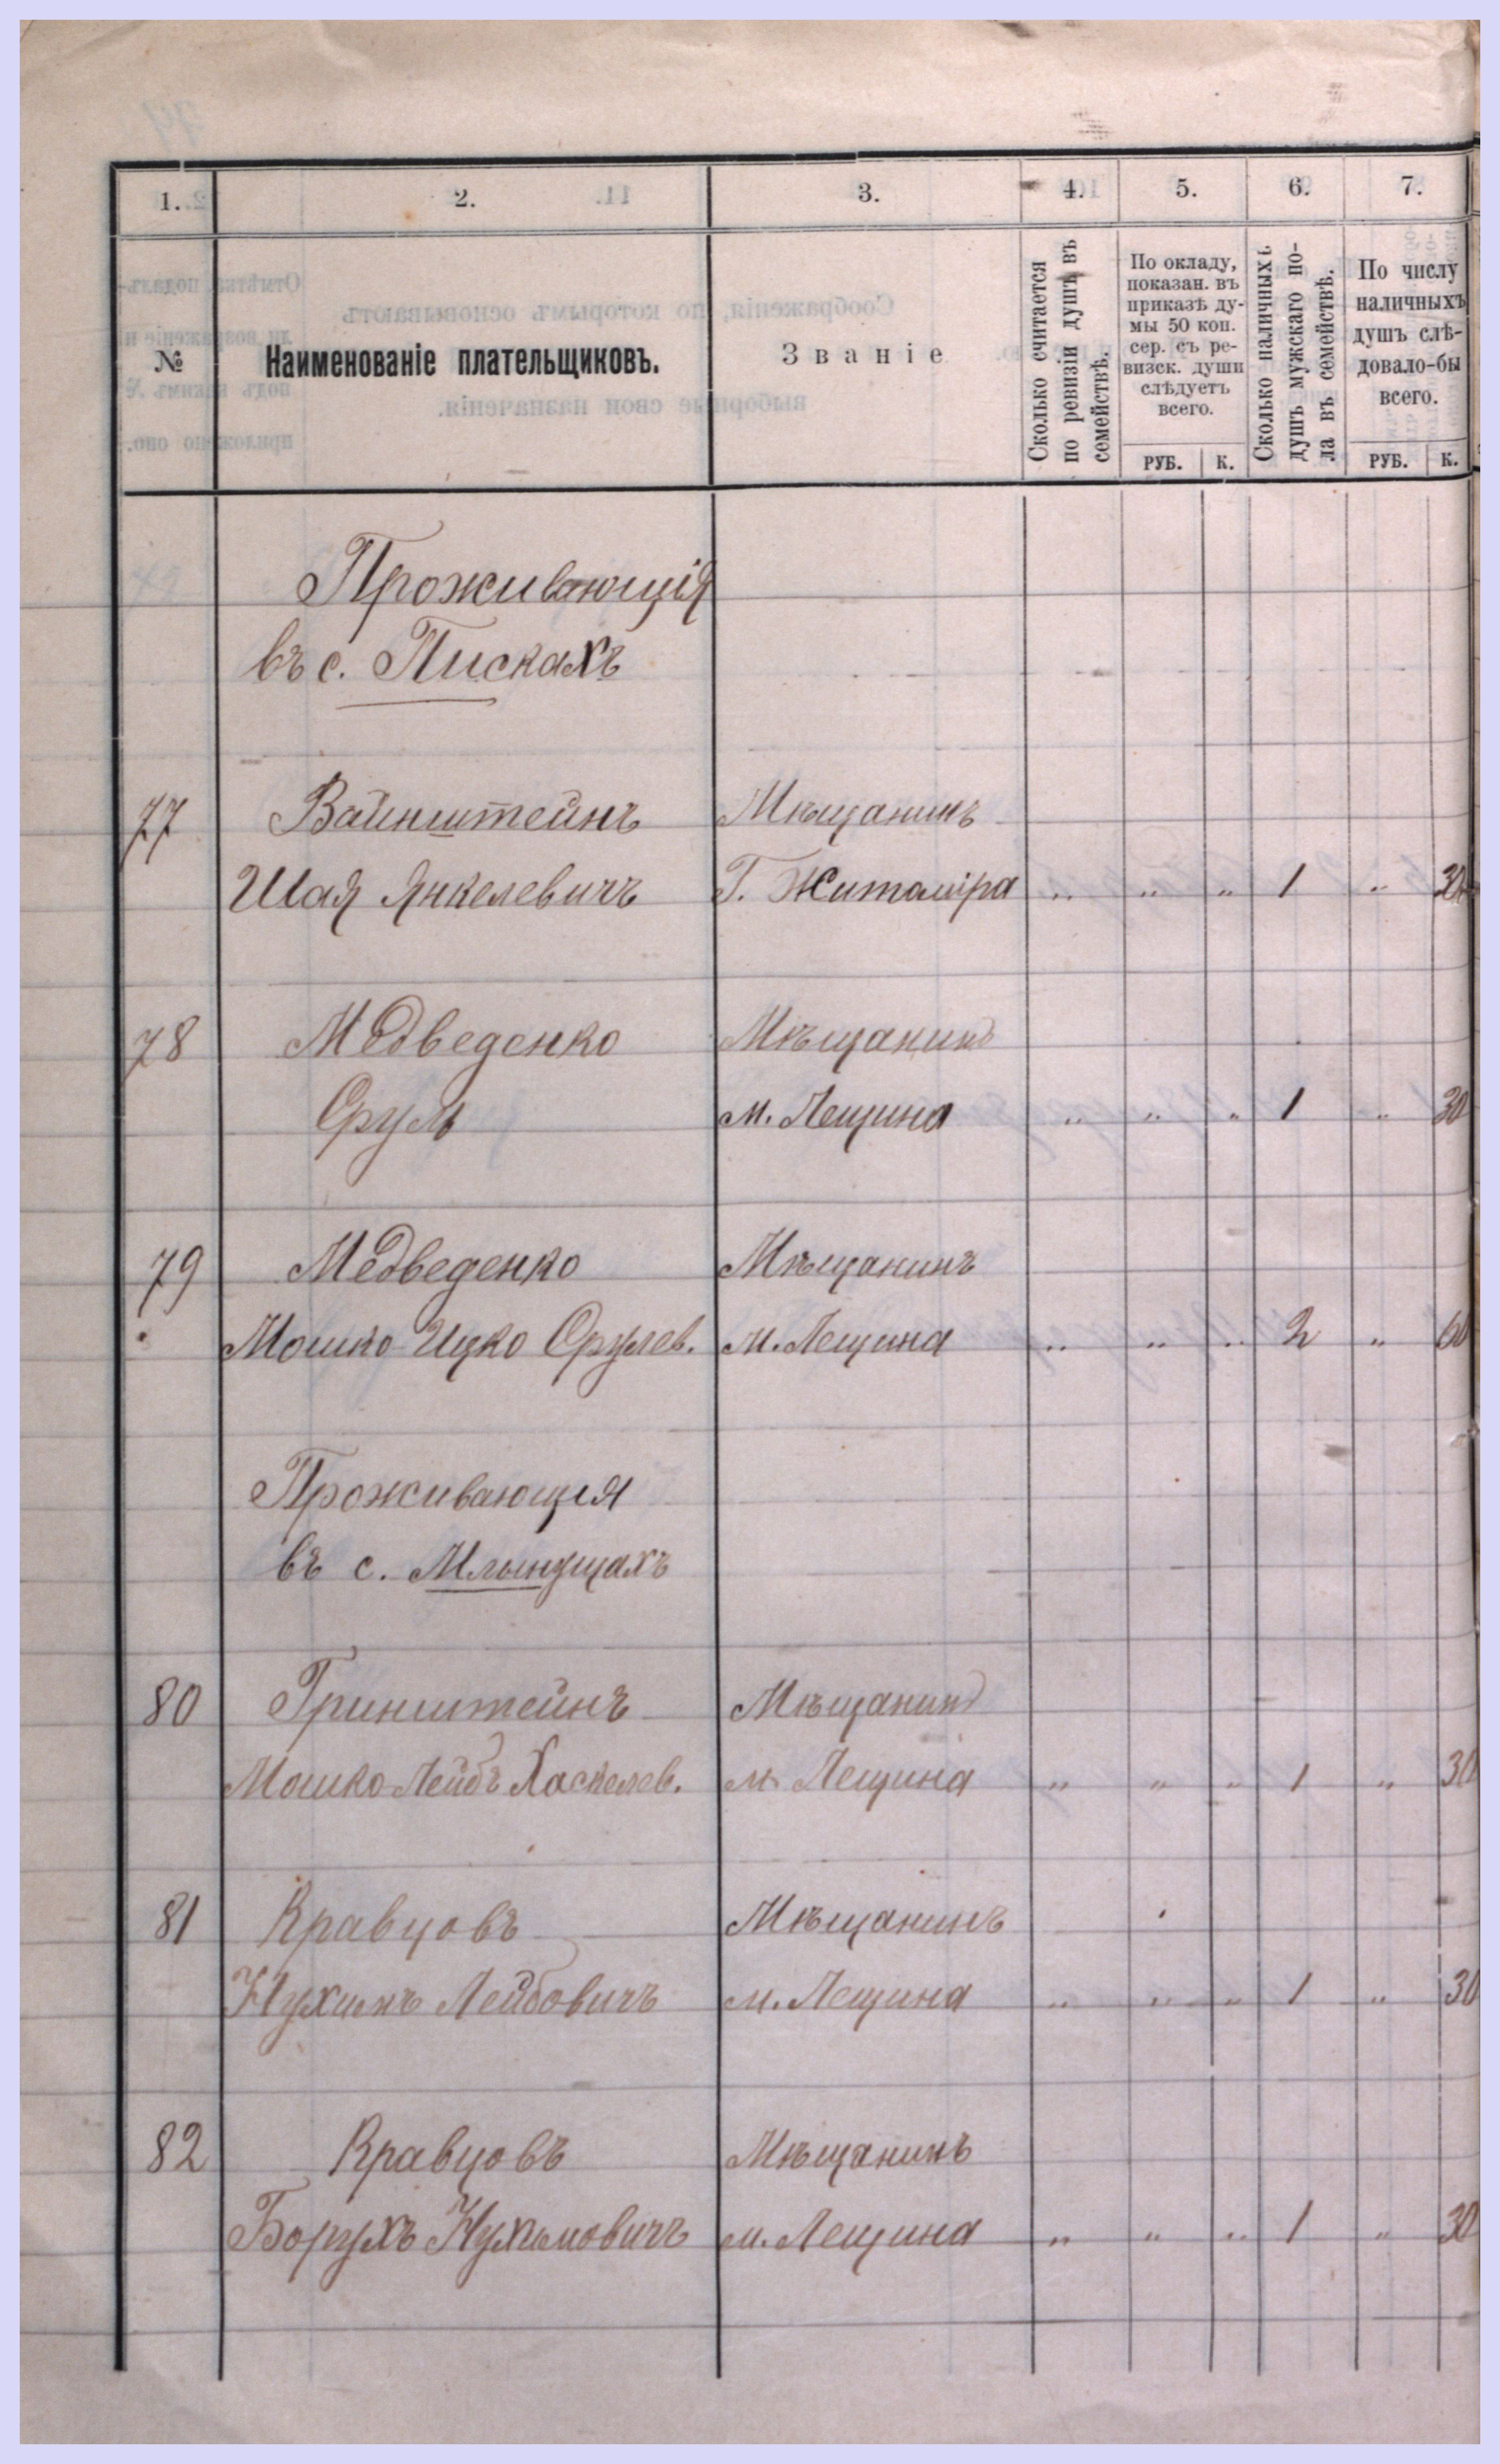 1. 2. 3. 4. 5. 6. 7.
№
Наименованіе плательщиковъ.
Званіе
Сколько считается
по ревизіи душъ въ
семействѣ.
По окладу,
показан. въ
приказѣ ду-
мы 50 коп.
сер. съ ре-
визск. души
слѣдуетъ
всего.
РУБ. К.
Сколько наличныхъ
душъ мужскаго по-
ла въ семействѣ.
По числу
наличныхъ
душъ слѣ-
довало-бы
всего.
РУБ. К.
Проживающія
въ с. Пискахъ
77 Вайнштейнъ Мѣщанинъ
Шая Янкелевичъ Г. Житоміра „ „ „ 1 „ 30
78 Медведенко Мѣщанинъ
Сруль м. Лещина „ „ „ 1 „ 30
79 Медведенко Мѣщанинъ
Мошко Ицко Срулев. м. Лещина „ „ „ 2 „ 60
Проживающія
въ с. Млынищахъ
80 Гринштейнъ Мѣщанинъ
Мошко-Лейбъ Хаскелев. м. Лещина „ „ „ 1 „ 30
81 Кравцовъ Мѣщанинъ
Нухимъ Лейбовичъ м. Лещина „ „ „ 1 „ 30
82 Кравцовъ Мѣщанинъ
Борухъ Нухимовичъ м. Лещина „ „ „ 1 „ 30